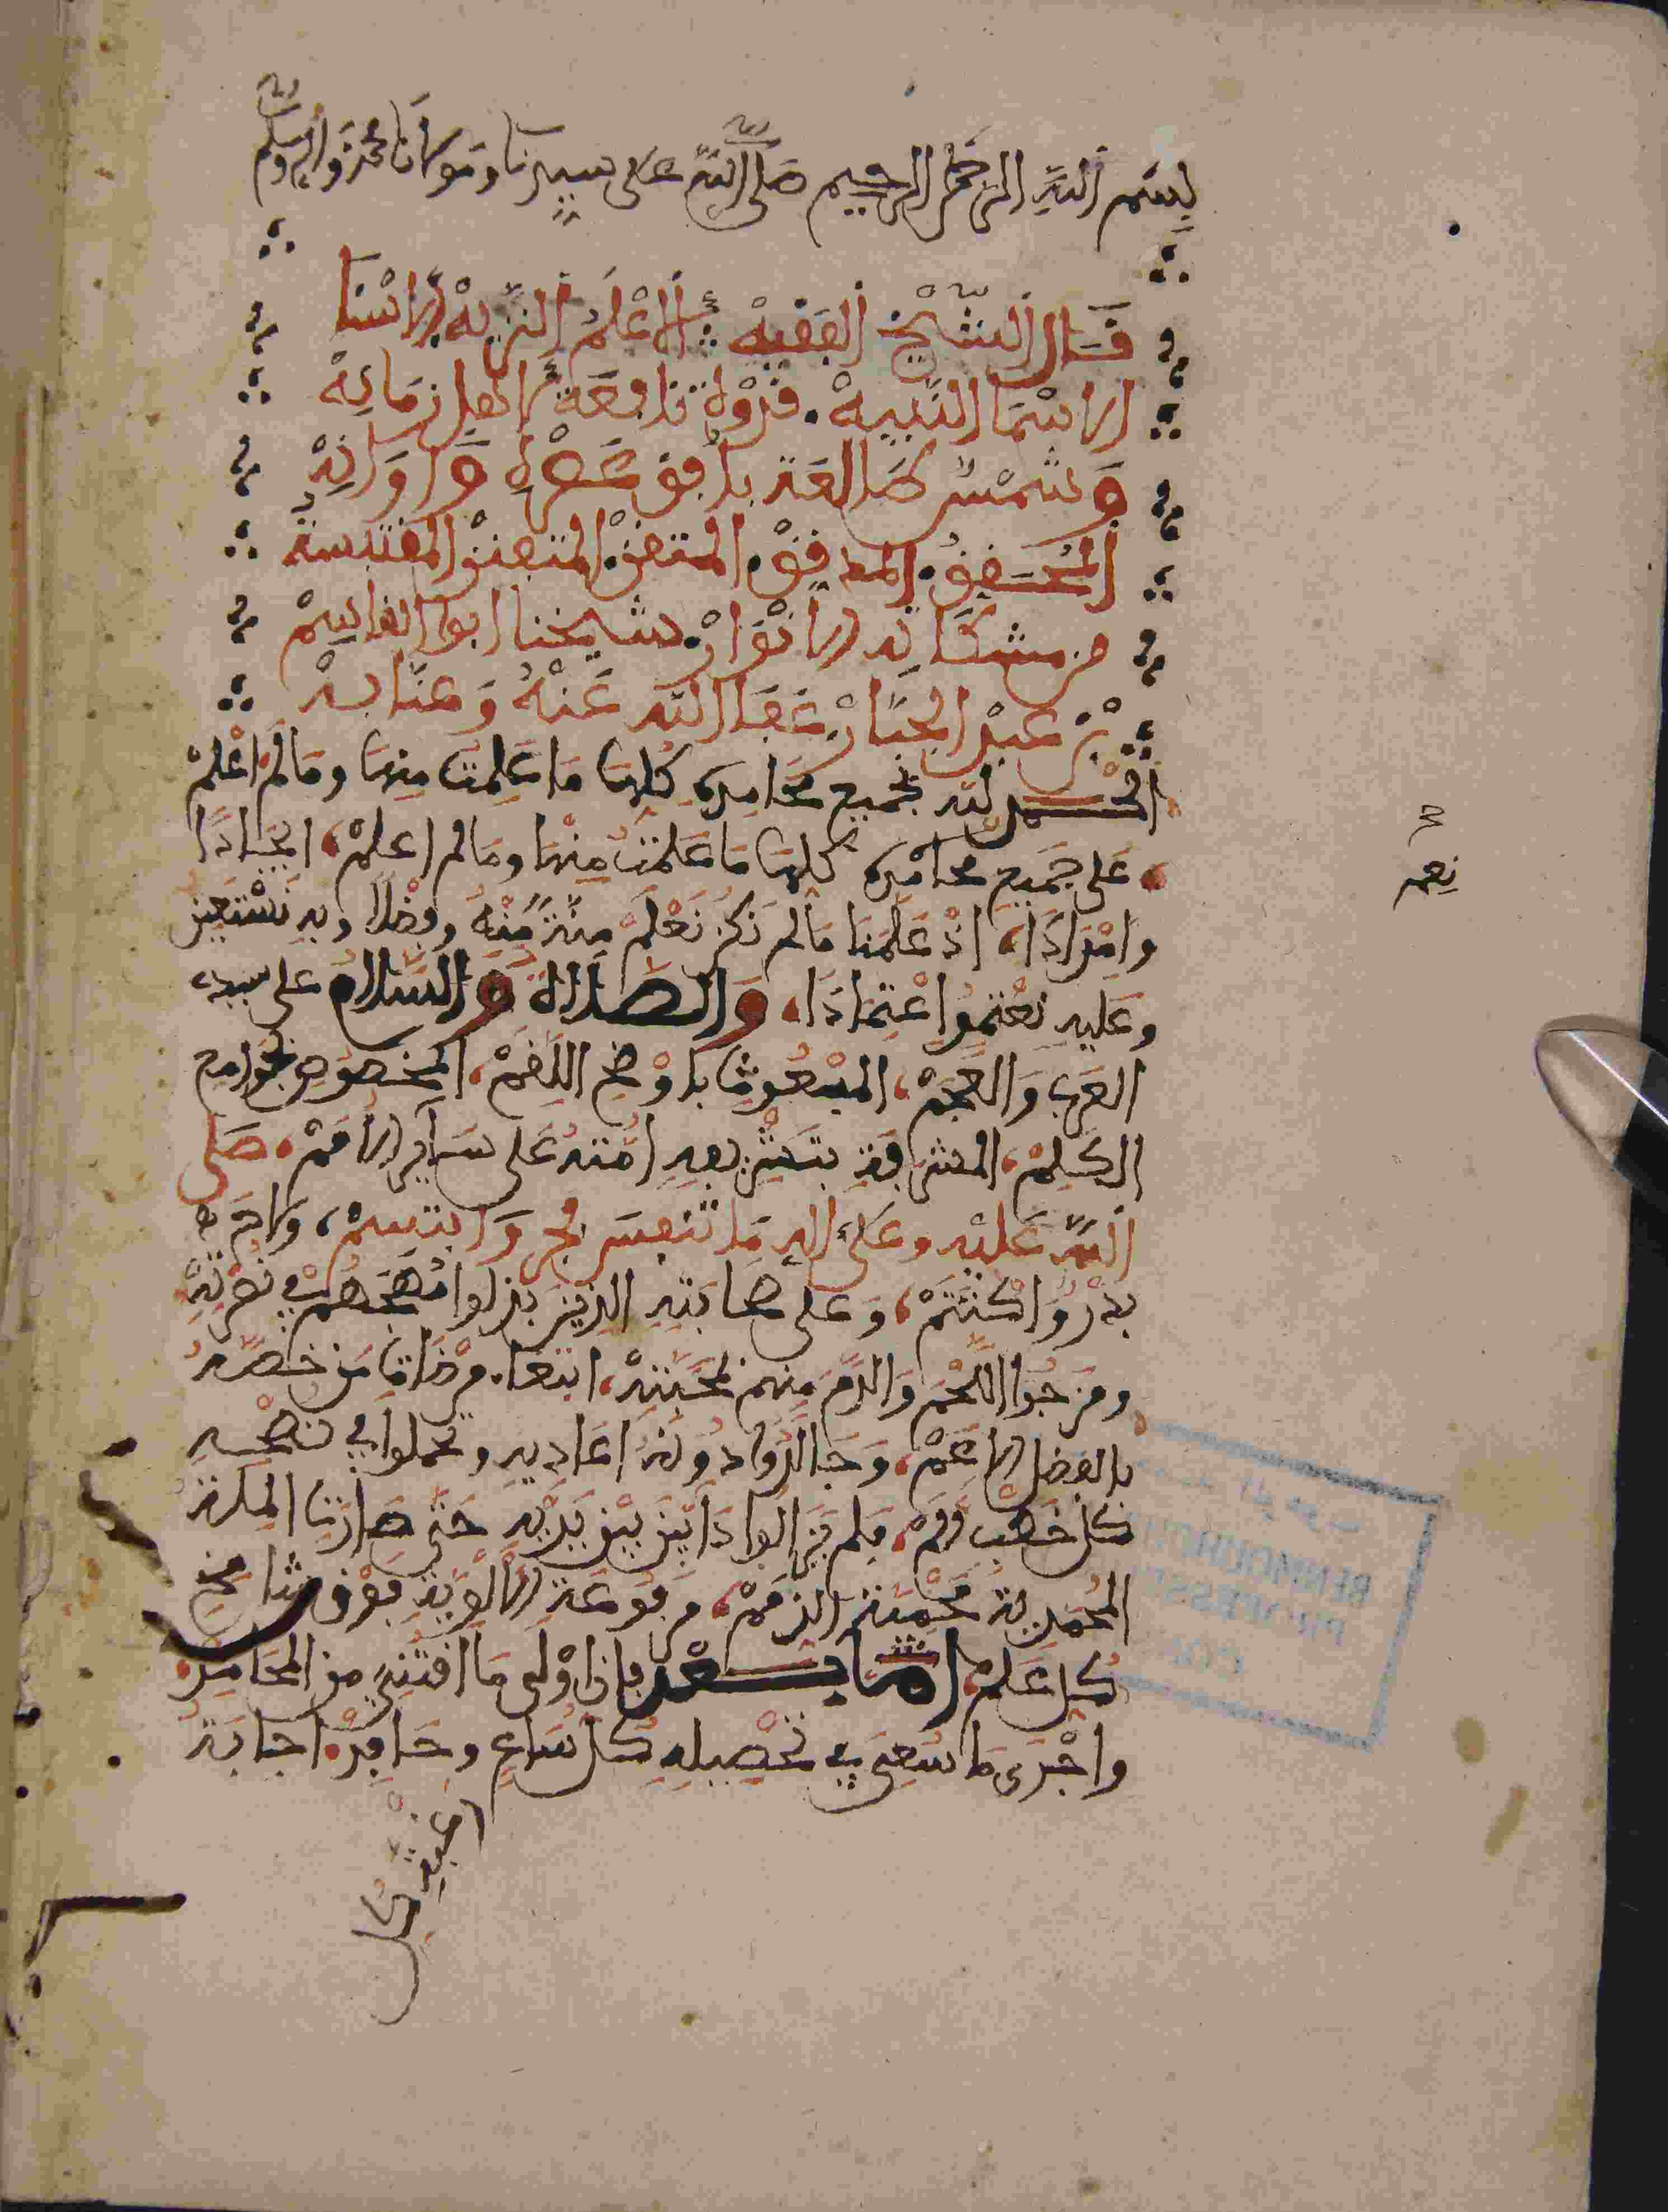 بسم الله الرحمن الرحيم صلى الله على سيدنا ومولانا محمد وآله وسلم
قال الشيخ الفقيه الأعلم النزيه الأسنا
الأسما النبيه قدوة نافعة لأهل زمانه
وشمس طالعة بأفق عصره وأوانه
المحقق المدقق المتقن المتفنن المقتبسة
من مشكاته الأنوار شيخنا ابوا القاسم
بن عبد الجبار عفا الله عنه وعنا به
الحمد لله بجميع محامده كلها ما علمت منها وما لم اعلم
على جميع محامده كلها ما علمت منها وما لم اعلم، ايجادا
وامدادا، اذ علمنا ما لم نكن نعلم منة منه وفضلا وبه نستعين
وعليه نعتمد اعتمادا، والصلاة والسلام على سيد
العرب والعجم، المبعوث باوضح اللقم، المخصوص بجوامع
الكلم، المشرفة بتشريفه امته على سائر الأمم، صلى
الله عليه وعلى اله ما تنفس فجر وابتسم، ولاح
بدر واكتتم، وعلى صحابته الذين بذلوا مهجهم في نصرته
ومزجوا اللحم والدم منهم بمحبته، ابتغا مرضات من خصه
بالفضل الأعم، وجالدوا دونه اعاديه وتحملوا في نصحه
كل خطب ملم، فلم يزالوا دابين بين يديه حتى صارت الملة
المحمدية محمية الذمم، مرفوعة الألوية فوق شامخ
كل علم، اما بعد فان اولى ما اقتني من المحامد
واحرى ما سعى في تحصيله كل ساع وحافد اجابة
كل
نعم
BENMOUHOUB
PROFESS